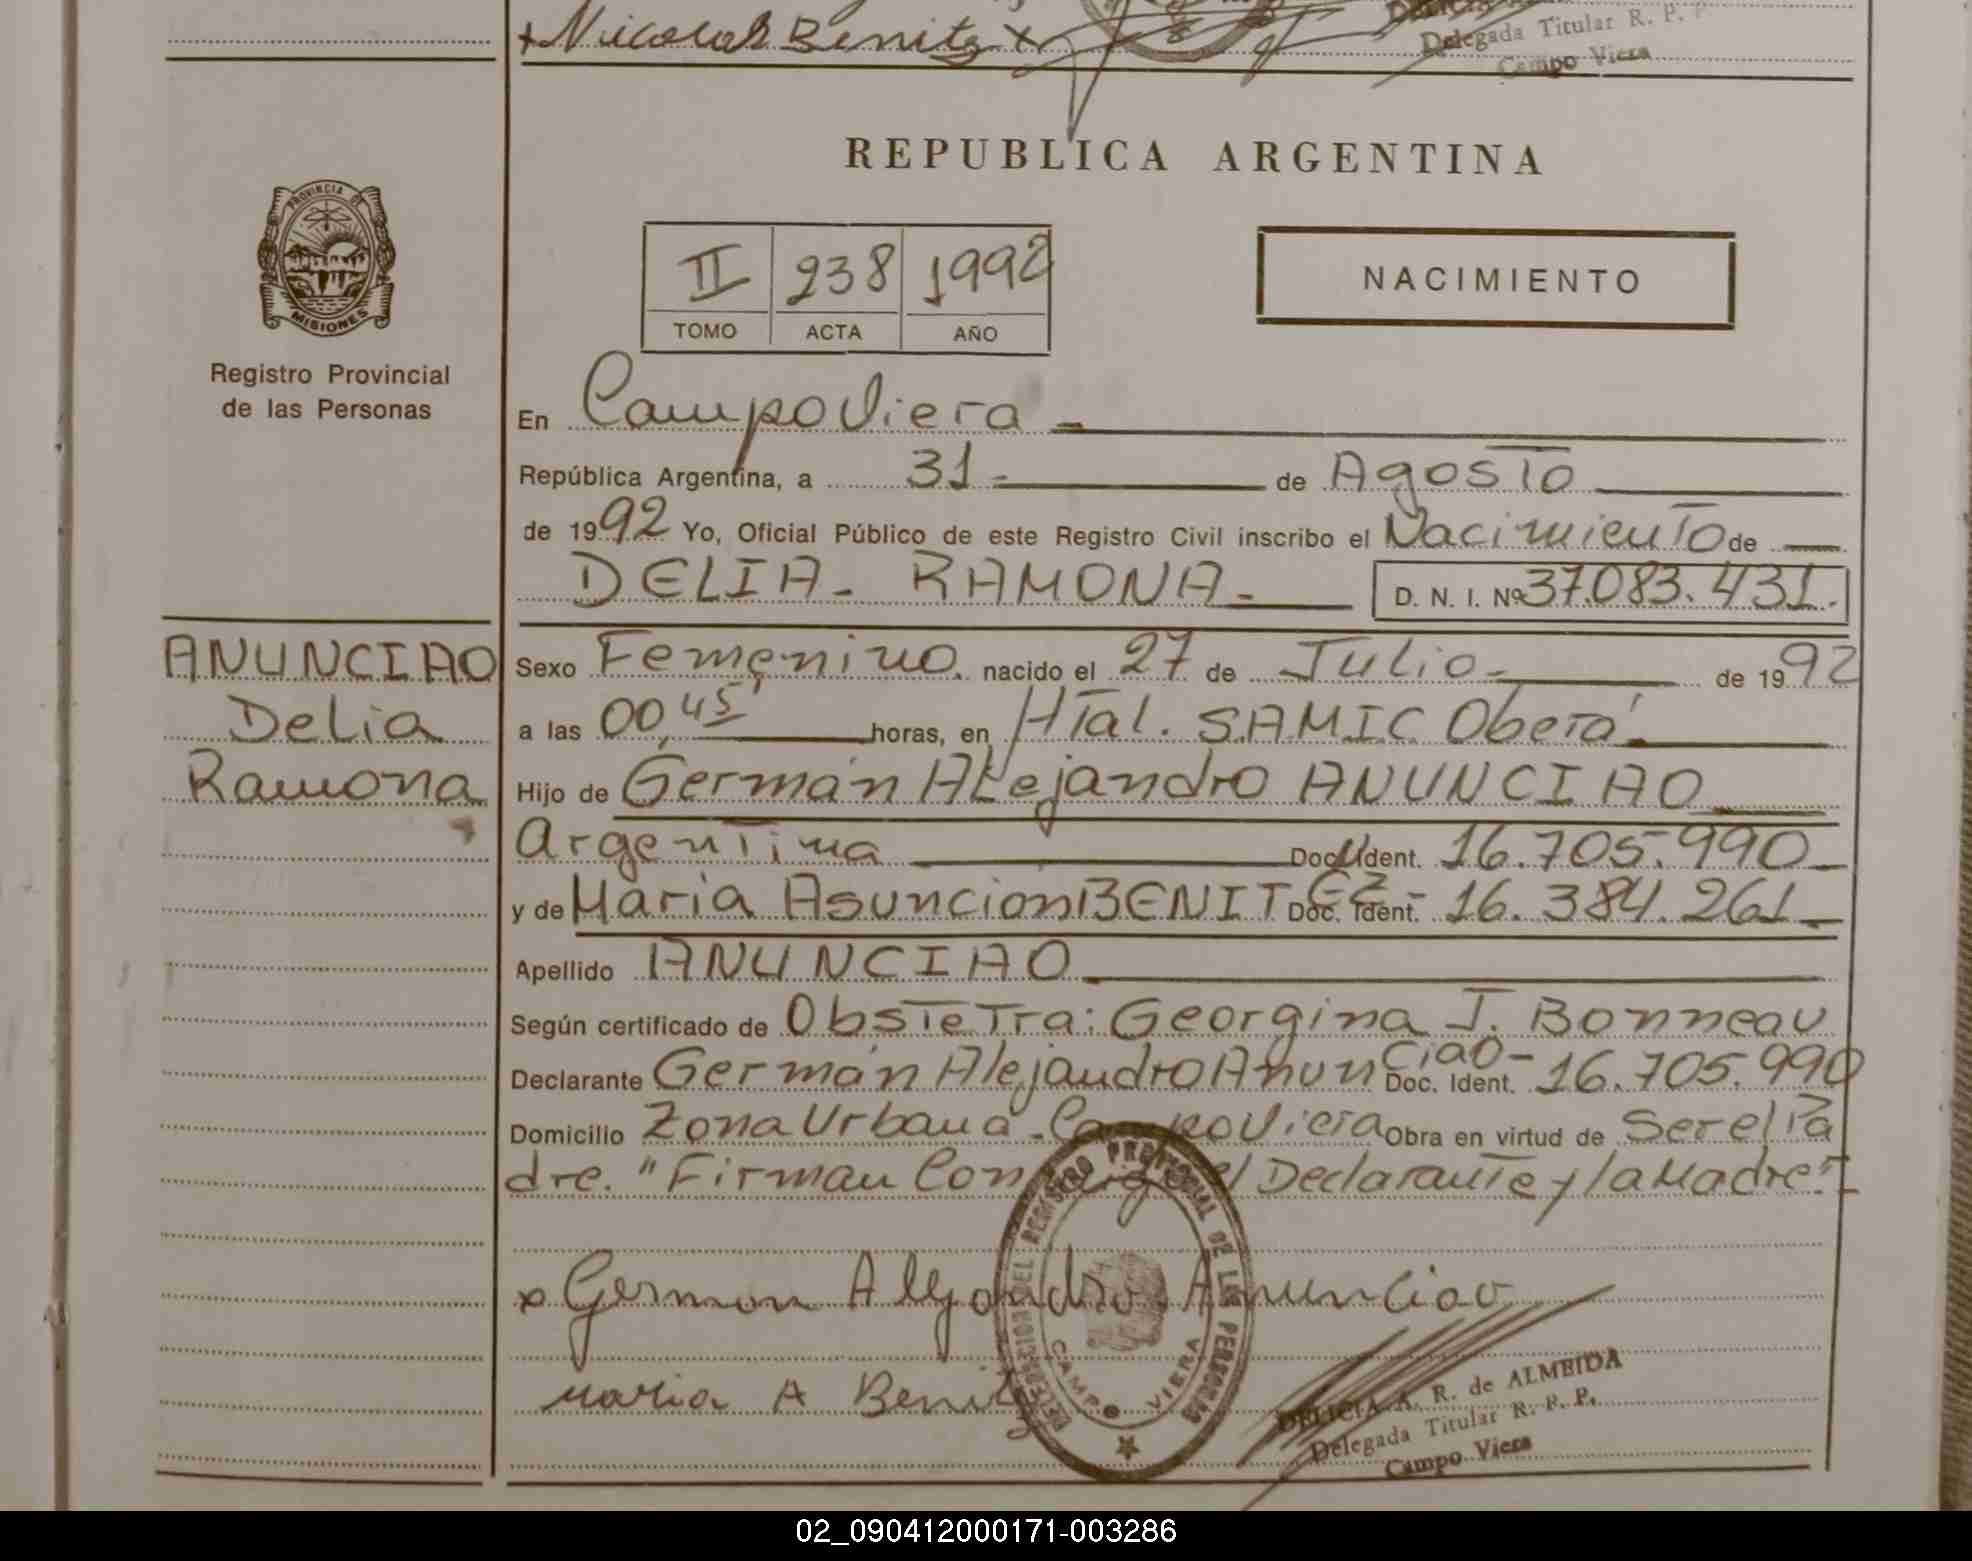 + Nicolas Benitez x
Delegada Titular R. P. P.
Campo Viera
REPUBLICA ARGENTINA
PROVINCIA DE
MISIONES
II 238 1992
TOMO ACTA AÑO
NACIMIENTO
Registro Provincial
de las Personas
En CampoViera
República Argentina, a 31 de Agosto
de 1992 Yo, Oficial Público de este Registro Civil inscribo el Nacimiento de
DELIA - RAMONA - D. N. I. Nº 37.083.431.
ANUNCIAO
Delia
Ramona
Sexo Femenino. nacido el 27 de Julio de 1992
a las 00,45' horas, en Htal. S.A.M.I.C. Oberá
Hijo de Germán Alejandro ANUNCIAO
Argentina Doc. Ident. 16.705.990
y de María Asunción BENITEZ - Doc. Ident. 16.384.261
Apellido ANUNCIAO
Según certificado de Obstetra: Georgina J. Bonneau
Declarante Germán Alejandro Anunciao - Doc. Ident. 16.705.990
Domicilio Zona Urbana - Campo Viera Obra en virtud de Ser el Pa
dre. "Firman Conmigo el Declarante y la Madre"
x German Alejandro Anunciao
Maria A Benitez
DEL REGISTRO PROVINCIAL DE LAS PERSONAS
CAMPO VIERA
DELICIA A. R. de ALMEIDA
Delegada Titular R. P. P.
Campo Viera
02_090412000171-003286